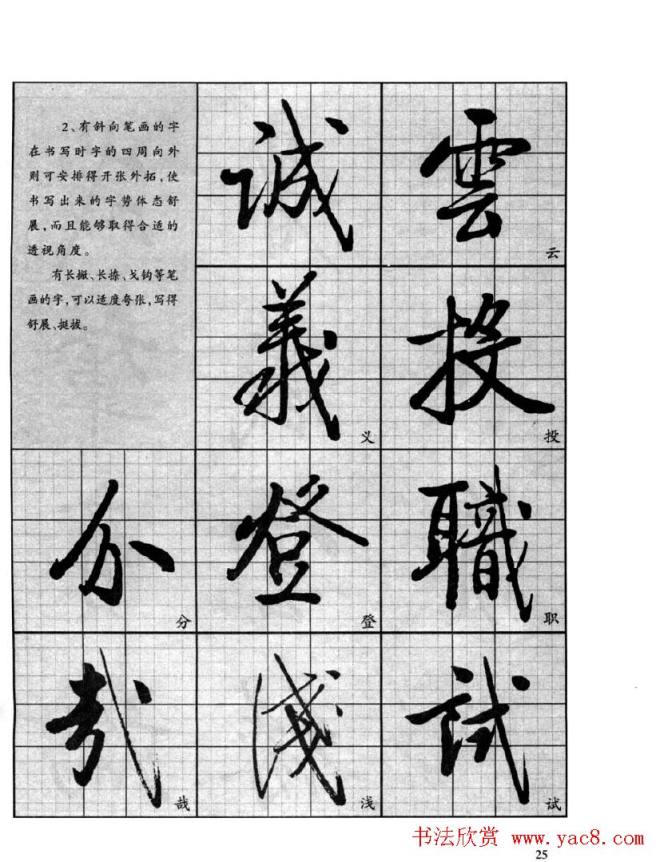 2、有斜向笔画的字
在书写时字的四周向外
则可安排得开张外拓,使
书写出来的字势体态舒
展,而且能够取得合适的
透视角度。
有长撇、长捺、戈钩等笔
画的字,可以适度夸张,写得
舒展、挺拔。
雲
云
投
投
職
职
試
试
誠
義
义
登
登
淺
浅
分
分
哉
哉
书法欣赏 www.yac8.com
25